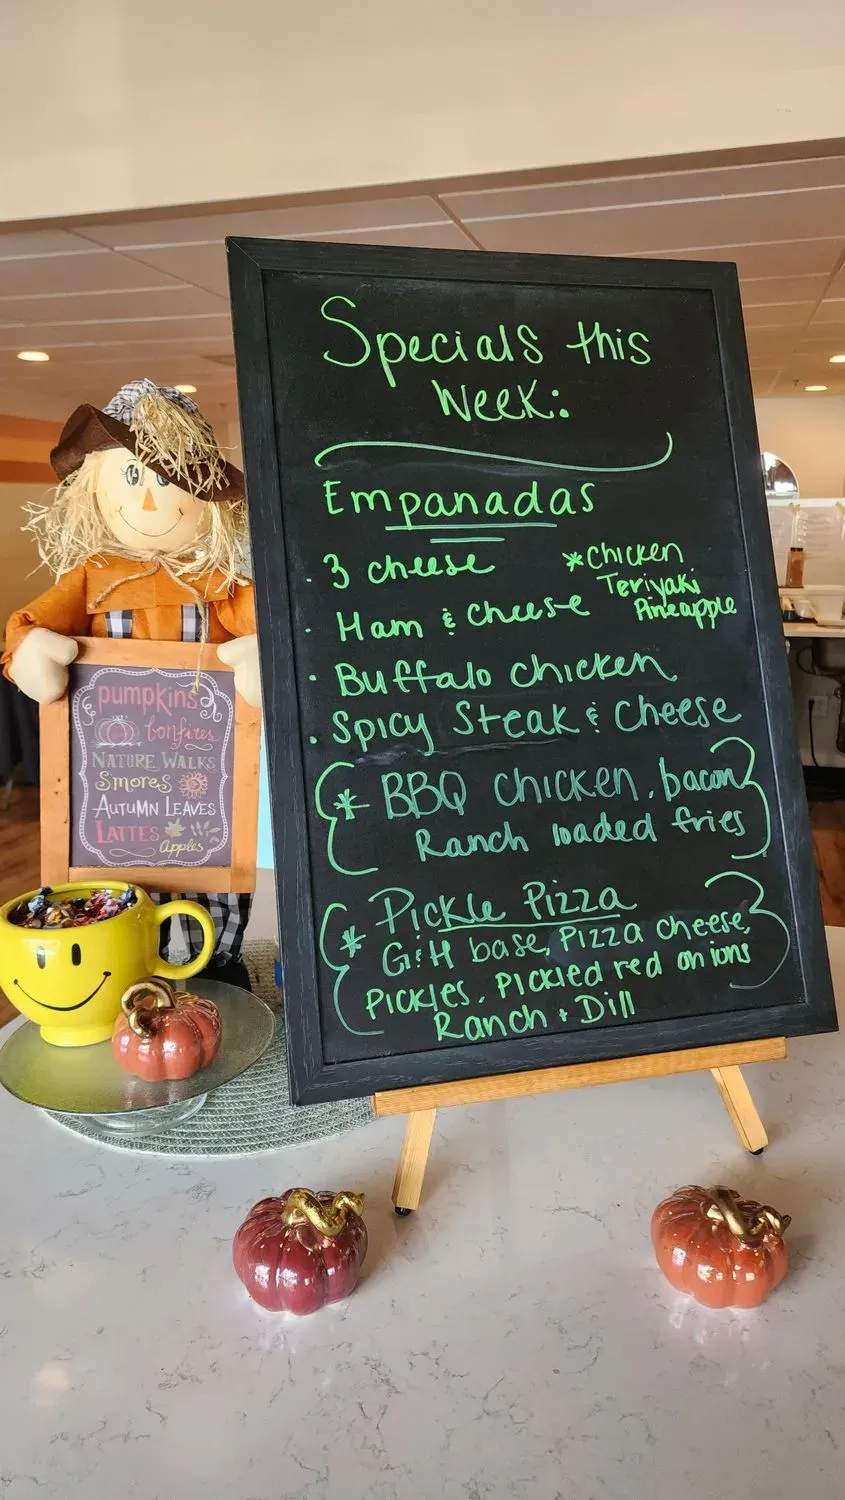 Specials this
Week:
Empanadas
· 3 cheese
* Chicken
Teriyaki
Pineapple
· Ham & Cheese
· Buffalo chicken
· Spicy Steak & Cheese
* BBQ chicken, bacon
Ranch loaded fries
* Pickle Pizza
G&H base, Pizza cheese,
Pickles, Pickled red onions
Ranch + Dill
pumpkins
bonfires
NATURE WALKS
Smores
AUTUMN LEAVES
LATTES
Apples